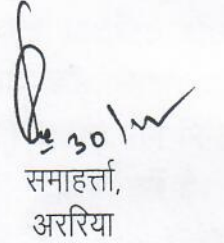 30/
समाहर्त्ता,
अररिया